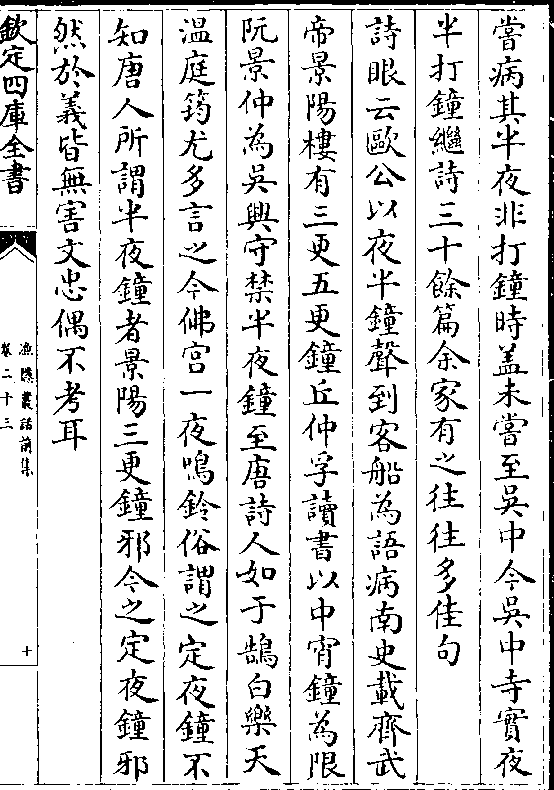 嘗病其半夜非打鐘時盖未嘗至吳中今吳中寺實夜
半打鐘繼詩三十餘篇余家有之往往多佳句
詩眼云歐公以夜半鐘聲到客船為語病南史載齊武
帝景陽樓有三更五更鐘丘仲孚讀書以中宵鐘為限
阮景仲為吳興守禁半夜鐘至唐詩人如于鵠白樂天
温庭筠尤多言之今佛宫一夜鳴鈴俗謂之定夜鐘不
知唐人所謂半夜鐘者景陽三更鐘邪今之定夜鐘邪
然於義皆無害文忠偶不考耳
欽定四庫全書
漁隱叢話前集
卷二十三
十